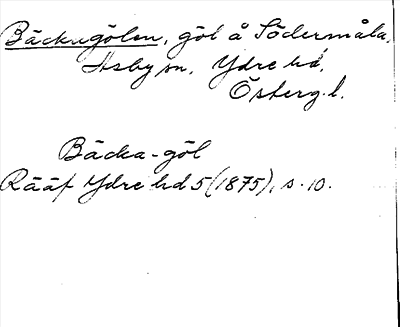 Bäckagölen, göl å Södermåla,
Asby sn, Ydre hd,
Österg. l.
Bäcka-göl
Rääf Ydre hd 5 (1875), s. 10.